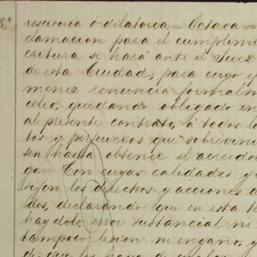 resisoria o dilatoria = Octava =
clamacion para el cumplimie
critura se hará ante el Juez
de esta Ciudad, para cuyo y
menez renuncia formalm
cilio, quedando obligado en
al presente contrato, á todos lo
tos y perjuicios que sobrevini
sen hasta obtener el acreedor
go = Con cuyas calidades y
rijen los derechos y acciones d
dos, declarando que en esta
hay dolo, error sustancial ni
tampoco lesion ni engaño, y